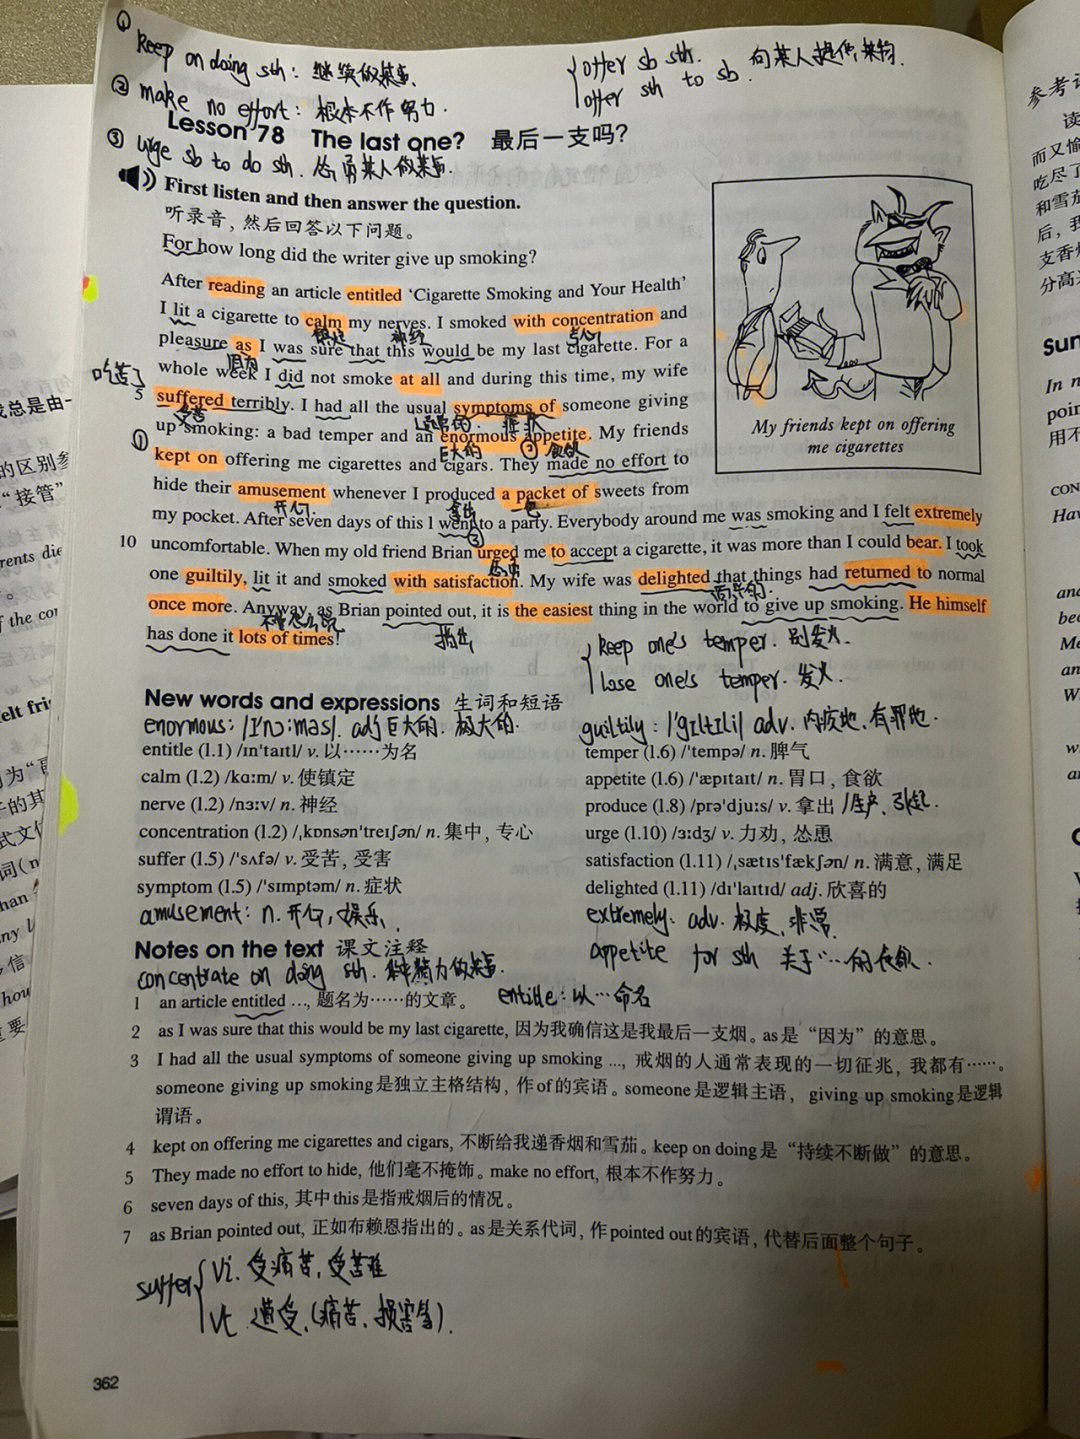 ①
keep on doing sth: 继续做某事.
{offer sb sth.
offer sth to sb. 向某人提供某物.
② make no effort: 根本不作努力.
Lesson 78 The last one? 最后一支吗?
③ urge sb to do sth. 怂恿某人做某事.
First listen and then answer the question.
听录音，然后回答以下问题。
For how long did the writer give up smoking?
After reading an article entitled ‘Cigarette Smoking and Your Health’
I lit a cigarette to calm my nerves. I smoked with concentration and
镇定 神经 专心
pleasure as I was sure that this would be my last cigarette. For a
因为
whole week I did not smoke at all and during this time, my wife
吃苦了
5 suffered terribly. I had all the usual symptoms of someone giving
受苦 通常的. 症状
up smoking: a bad temper and an enormous appetite. My friends
① 巨大的 ② 食欲
kept on offering me cigarettes and cigars. They made no effort to
hide their amusement whenever I produced a packet of sweets from
开心 拿出 一包
my pocket. After seven days of this I went to a party. Everybody around me was smoking and I felt extremely
③
10 uncomfortable. When my old friend Brian urged me to accept a cigarette, it was more than I could bear. I took
one guiltily, lit it and smoked with satisfaction. My wife was delighted that things had returned to normal
高兴的.
once more. Anyway, as Brian pointed out, it is the easiest thing in the world to give up smoking. He himself
不管怎么说 指出
has done it lots of times!
{keep one's temper. 别发火.
lose one's temper. 发火.
My friends kept on offering
me cigarettes
New words and expressions 生词和短语
enormous: /ɪ'nɔːməs/. adj 巨大的. 极大的.
guiltily: /'gɪltɪli/ adv. 内疚地. 有罪地.
entitle (l.1) /ɪn'taɪtl/ v. 以……为名
temper (l.6) /'tempə/ n. 脾气
calm (l.2) /kɑːm/ v. 使镇定
appetite (l.6) /'æpɪtaɪt/ n. 胃口，食欲
nerve (l.2) /nɜːv/ n. 神经
produce (l.8) /prə'djuːs/ v. 拿出 /生产、引起.
concentration (l.2) /ˌkɒnsən'treɪʃən/ n. 集中，专心
urge (l.10) /ɜːdʒ/ v. 力劝，怂恿
suffer (l.5) /'sʌfə/ v. 受苦，受害
satisfaction (l.11) /ˌsætɪs'fækʃən/ n. 满意，满足
symptom (l.5) /'sɪmptəm/ n. 症状
delighted (l.11) /dɪ'laɪtɪd/ adj. 欣喜的
amusement: n. 开心，娱乐
extremely: adv. 极度、非常.
Notes on the text 课文注释
appetite for sth 关于……的食欲.
concentrate on doing sth. 集中精力做某事.
1 an article entitled …, 题名为……的文章。 entitle: 以…命名
2 as I was sure that this would be my last cigarette, 因为我确信这是我最后一支烟。as是“因为”的意思。
3 I had all the usual symptoms of someone giving up smoking …, 戒烟的人通常表现的一切征兆，我都有……。
someone giving up smoking是独立主格结构，作of的宾语。someone是逻辑主语，giving up smoking是逻辑
谓语。
4 kept on offering me cigarettes and cigars, 不断给我递香烟和雪茄。keep on doing是“持续不断做”的意思。
5 They made no effort to hide, 他们毫不掩饰。make no effort, 根本不作努力。
6 seven days of this, 其中this是指戒烟后的情况。
7 as Brian pointed out, 正如布赖恩指出的。as是关系代词，作pointed out的宾语，代替后面整个句子。
suffer {Vi. 受痛苦，受苦难
Vt 遭受.(痛苦、损害等).
362
总是由
的区别参
“接管”
rents die
f the con
elt fri
式文
词(n
han
ny l
信
hou
重要
参考
读
而又愉
吃尽了
和雪茄
后，我
支香烟
分高
Sun
In n
poin
用不
CON
Hav
and
bec
Me
an
W
w
a